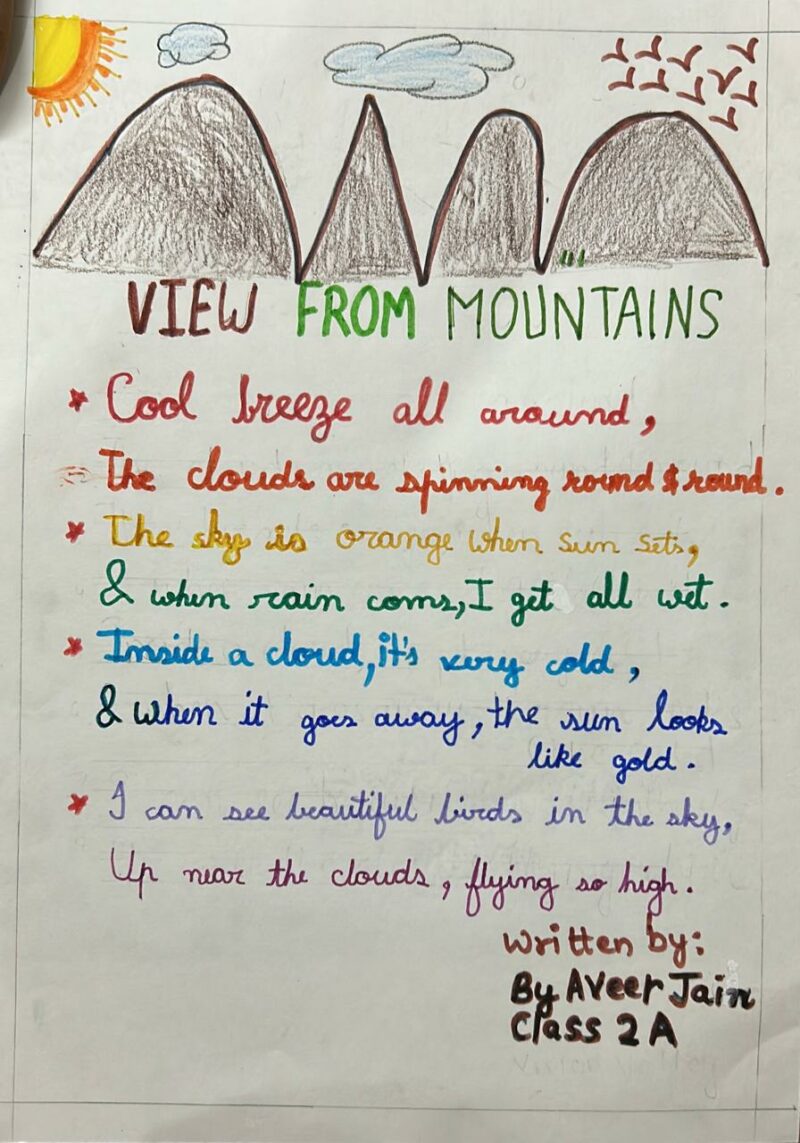 VIEW FROM MOUNTAINS
Cool breeze all around,
The clouds are spinning round & round.
The sky is orange when sun sets,
& when rain coms, I get all wet.
Inside a cloud, it's very cold,
& when it goes away, the sun looks
like gold.
I can see beautiful birds in the sky,
Up near the clouds, flying so high.
Written by:
By AVeer Jain
Class 2 A